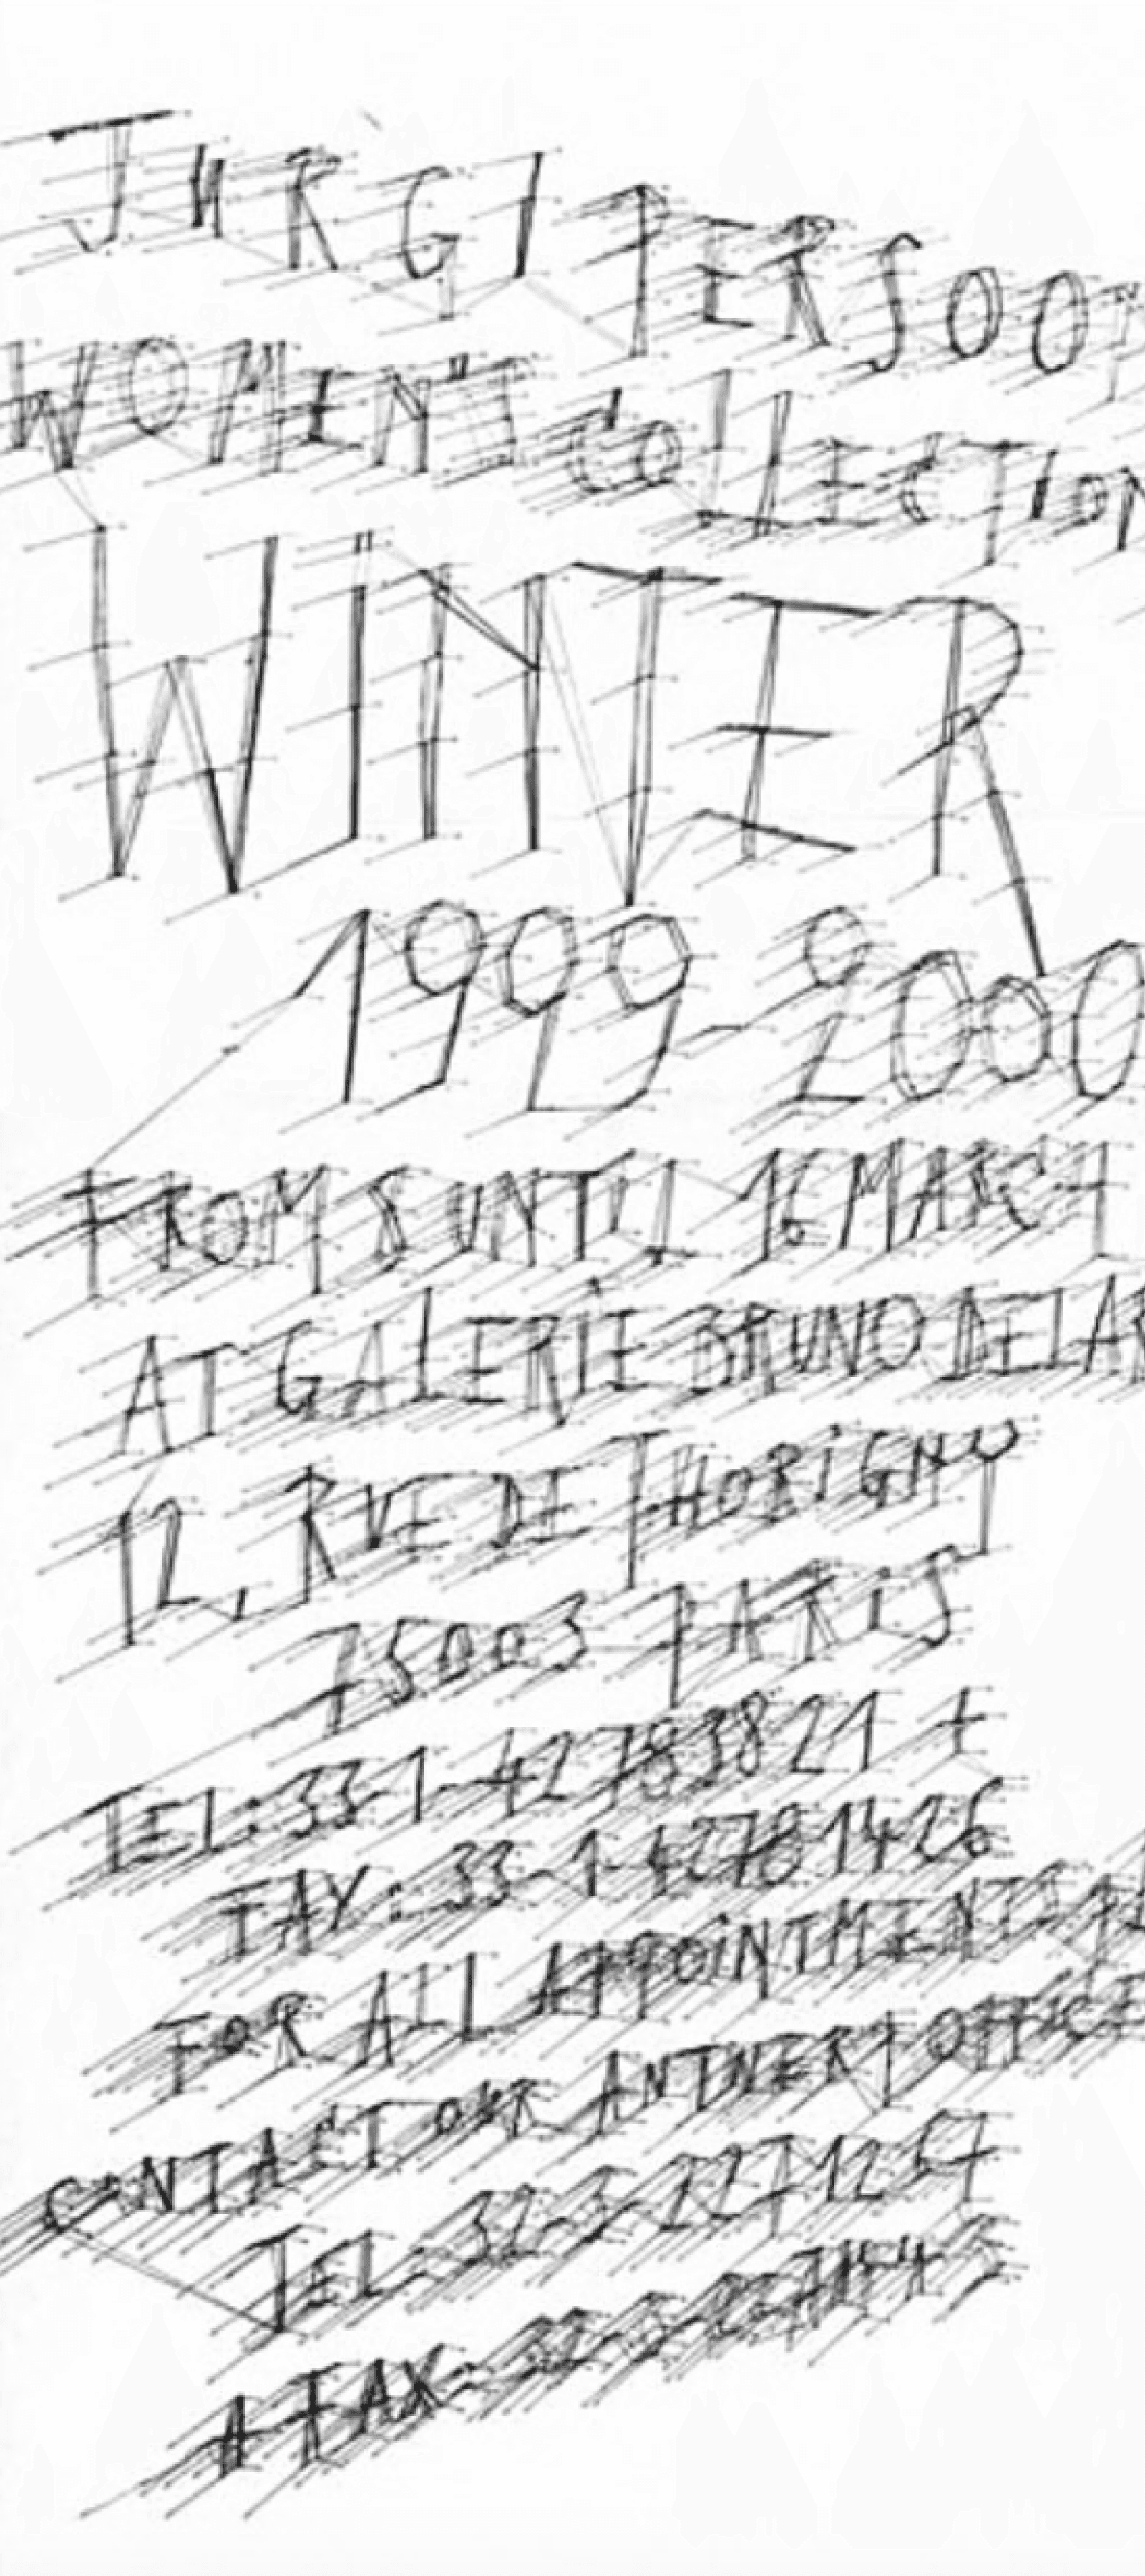 JURGI PERSOON
WOMEN'S COLLECTION
WINTER
1999-2000
FROM 8 UNTIL 16. MARCH
AT GALERIE BRUNO DELAR
12, RUE DE THORIGNY
75003 PARIS
TEL: 33-1-42783821 +
FAX: 33-1-42781426
FOR ALL APPOINTMENTS
CONTACT OUR ANTWERP OFFICE
TEL: 32-3-
+ FAX: